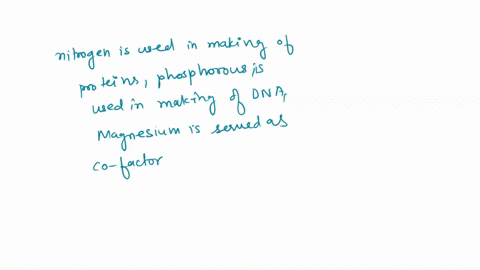 nitrogen is used in making of
proteins, phosphorous is
used in making of DNA,
Magnesium is served as
co-factor